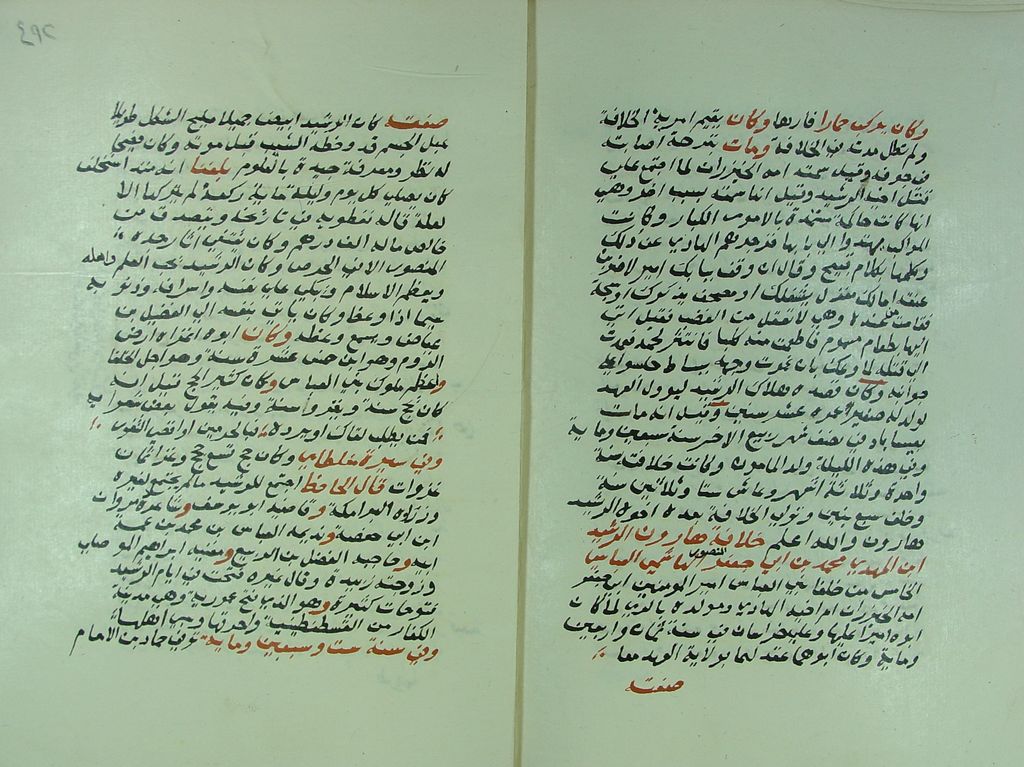 وكان يركب حمارا فارها وكان يقيم امرية الخلافة
ولم تطل مدته في الخلافة ومات بقرحة اصابته
في جوفه وقيل سمته امه الخيزران لما اجمع على
قتل اخيه الرشيد وقيل انها سمته بسبب اخر وهي
انها كانت حاكمة مستبدة بالامور الكبار وكانت
المواكب يغدوا الى بابها فزجرهم الهادي عن ذلك
وكلمها بكلام قبيح وقال ان وقف ببابك امير لاضربن
عنقه امالك مغزل يشغلك او مصحف يذكرك او سبحة
فقامت عنده وهي لا تعقل من الغضب فقيل انه
اليها بطعام مسموم فاطعمت منه كلبا فانتثر لحمه فعمدت
الى قتله لما وعك بان غموا وجهه ببساط جلسوا على
جوانبه وكان قصده هلاك الرشيد ليولي العهد
لولد له صغير عمره عشر سنين وقيل انه مات
بعيساباد في نصف شهر ربيع الاخر سنة سبعين وماية
وفي هذه الليلة ولد المامون وكانت خلافته سنة
واحدة وثلاثة اشهر وعاش ستا وثلاثين سنة
وخلف سبع بنين وتولى الخلافة بعده اخوه الرشيد
هارون والله اعلم خلافة هارون الرشيد
ابن المهدي محمد بن ابي جعفر المنصور الهاشمي العباسي
الخامس من خلفا بني العباس امير المومنين ابي جعفر
امه الخيزران ام اخيه الهادي ومولده بالري لما كان
ابوه اميرا عليها وعلى خراسان في سنة ثمان واربعين
وماية وكان ابوهما عقد لهما بولاية العهد معا
صفته
٤٩٢
صفته كان الرشيد ابيض جميلا مليح الشكل طويلا
عبل الجسم قد وخطه الشيب قبل موته وكان فصيحا
له نظر ومعرفة جيدة بالعلوم بلغنا انه منذ استخلف
كان يصلي كل يوم وليلة ماية ركعة لم يتركها الا
لعلة قاله نفطويه في تاريخه ويتصدق من
خالص ماله الف درهم وكان يقتفي اثار جده
المنصور الا في الحرص وكان الرشيد يحب العلم واهله
ويعظم الاسلام ويبكي على نفسه واسرافه وذنوبه
سيما اذا وعظ وكان ياتي بنفسه الى الفضيل بن
عياض ويسمع وعظه وكان ابوه اغزاه ارض
الروم وهو ابن خمس عشرة سنة وهو اجل الخلفا
واعظم ملوك بني العباس وكان كثير الحج قيل انه
كان يحج سنة ويغزوا سنة وفيه يقول بعض شعرايه
فمن يطلب لقاك او يرده فبالحرمين او اقصى الثغور
وفي سيرة مغلطاي وكان حج تسع حجج وغزا ثمان
غزوات قال الحافظ اجتمع للرشيد مالم يجتمع لغيره
وزراه البرامكة وقاضيه ابو يوسف وشاعره مروان
ابن ابي حفصة ونديمه العباس بن محمد بن عمه
ابيه وحاجبه الفضل بن الربيع ومغنيه ابراهيم الموصلي
وزوجته زبيدة وقال غيره فتحت في ايام الرشيد
فتوحات كثيرة وهو الذي فتح عمورية وهي مدينة
الكفار من القسطنطينية واحرقها وسبى اهلها
وفي سنة ست وسبعين وماية توفي حماد بن الامام